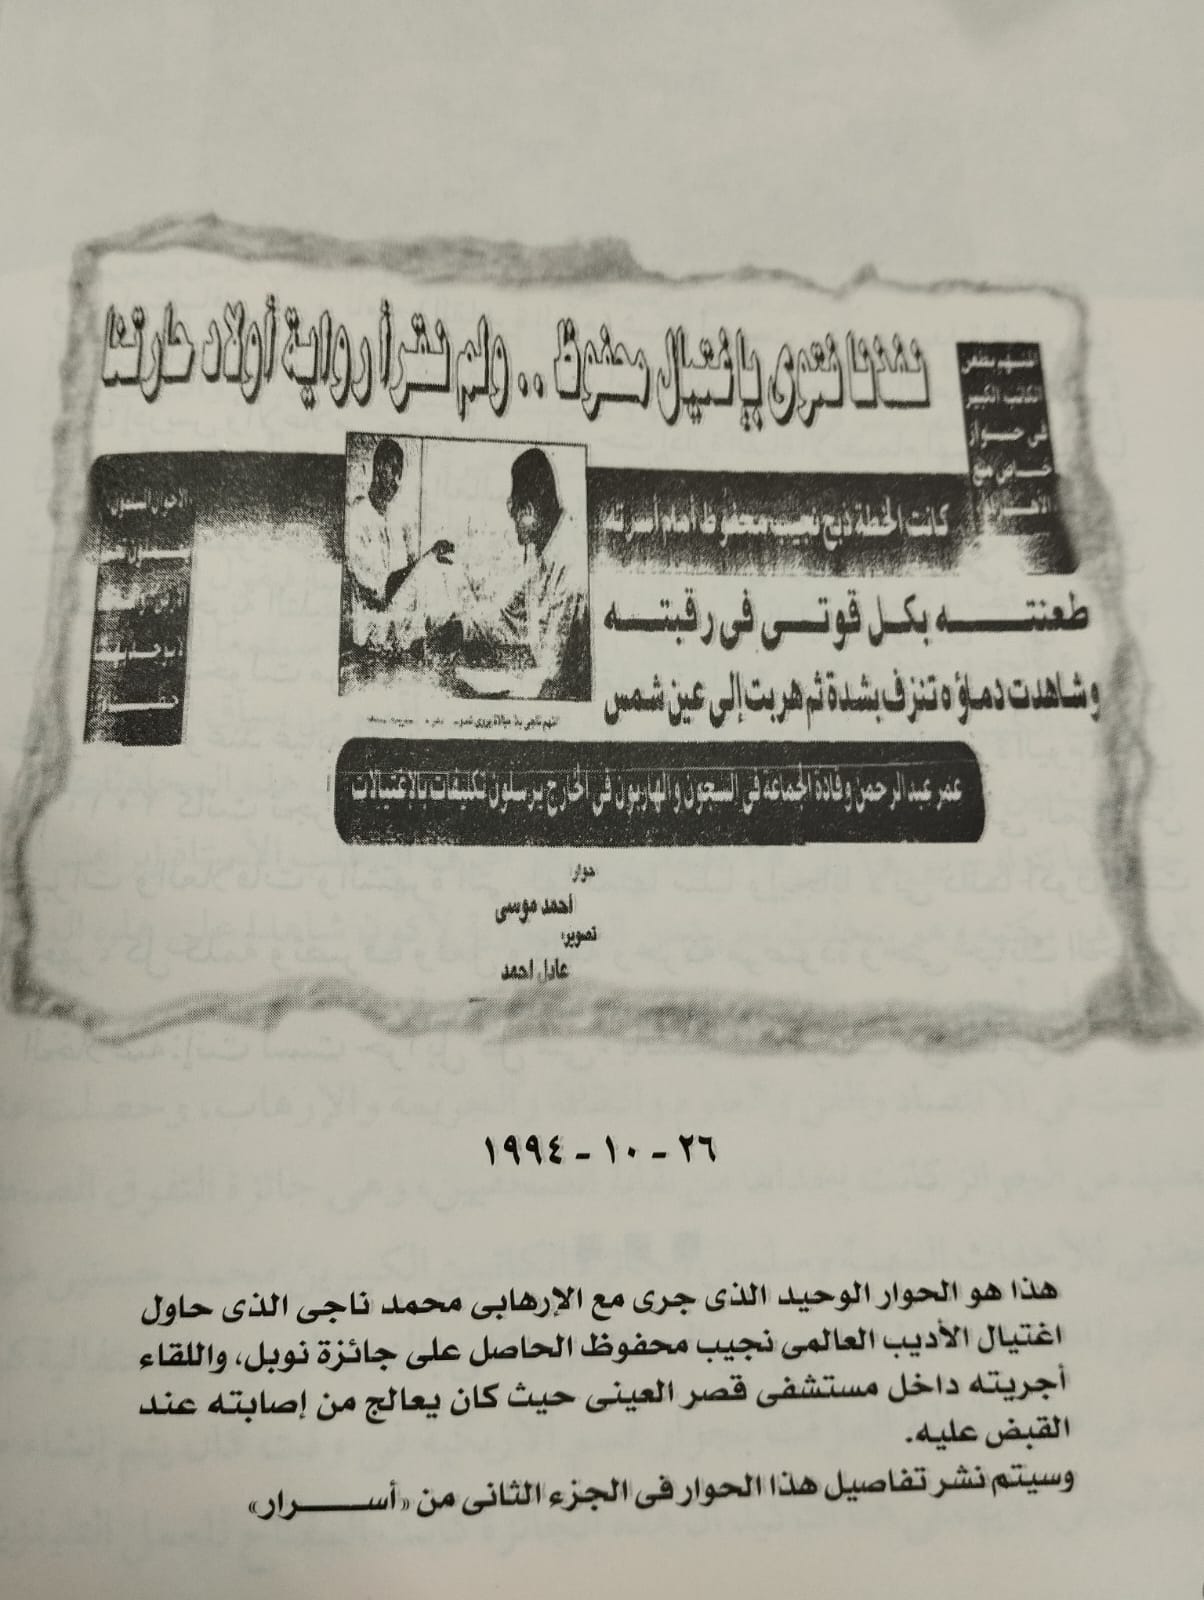 نفذنا فتوى بإغتيال محفوظ .. ولم نقرأ رواية أولاد حارتنا
المتهم بطعن
الكاتب الكبير
فى حوار
خاص مع
الأهرام
كانت الخطة ذبح نجيب محفوظ أمام أسرته
طعنته بكل قوتى فى رقبته
وشاهدت دماؤه تنزف بشدة ثم هربت إلى عين شمس
الاخوان المسلمون
عمر عبد الرحمن وقادة الجماعة فى السجون والهاربون فى الخارج يرسلون تكليفات بالاغتيالات
حوار:
أحمد موسى
تصوير:
عادل احمد
٢٦ - ١٠ - ١٩٩٤
هذا هو الحوار الوحيد الذى جرى مع الإرهابى محمد ناجى الذى حاول
اغتيال الأديب العالمى نجيب محفوظ الحاصل على جائزة نوبل، واللقاء
أجريته داخل مستشفى قصر العينى حيث كان يعالج من إصابته عند
القبض عليه.
وسيتم نشر تفاصيل هذا الحوار فى الجزء الثانى من «أســـرار»